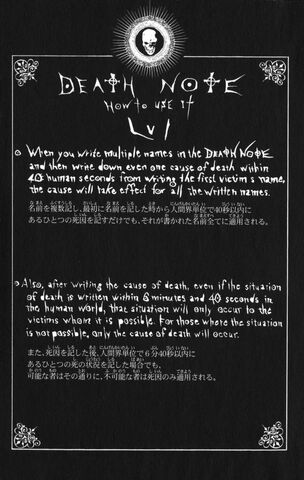 DEATH NOTE
HOW TO USE IT
LVI
When you write multiple names in the DEATH NOTE
and then write down even one cause of death within
40 human seconds from writing the first victim's name,
the cause will take effect for all the written names.
名前を複数記し、最初に名前を記した時から人間界単位で40秒以内に
あるひとつの死因を記すだけでも、それが書かれた名前全てに適用される。
Also, after writing the cause of death, even if the situation
of death is written within 6 minutes and 40 seconds in
the human world, that situation will only occur to the
victims whom it is possible. For those where the situation
is not possible, only the cause of death will occur.
また、死因を記した後、人間界単位で6分40秒以内に
あるひとつの死の状況を記した場合でも、
可能な者はその通りに、不可能な者は死因のみ適用される。